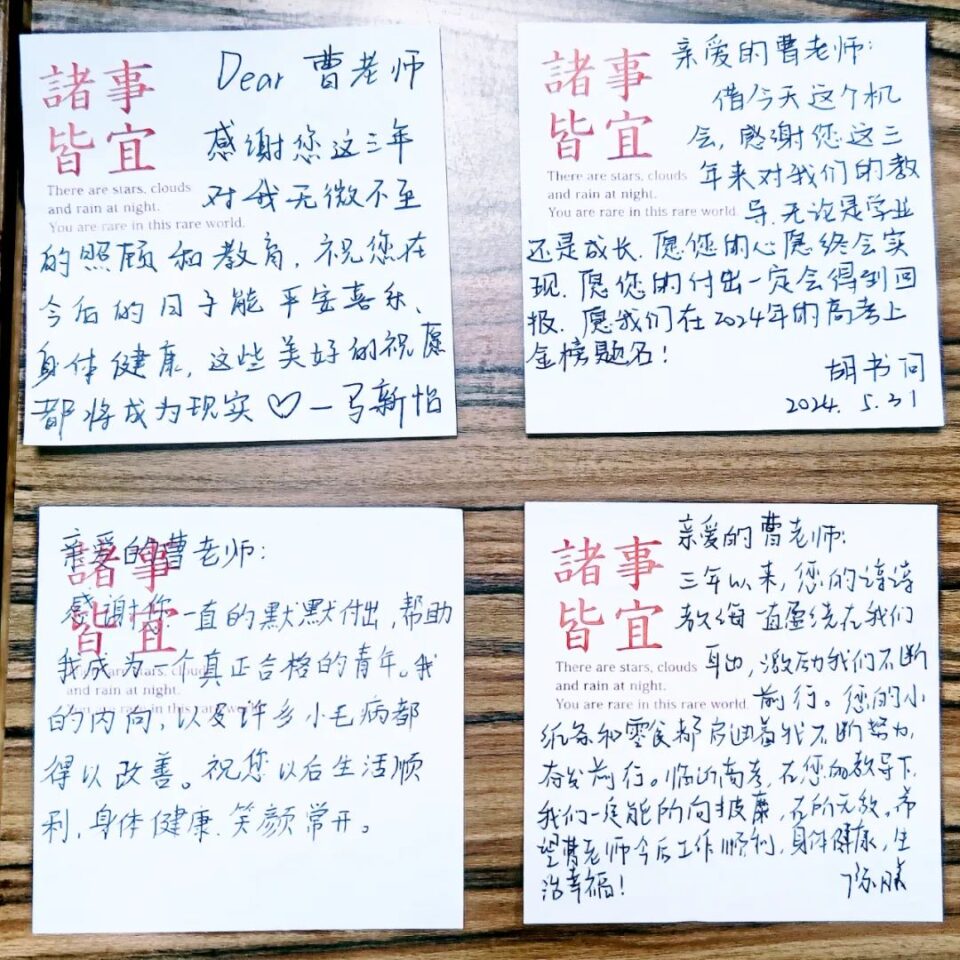 諸事
皆宜
There are stars, clouds
and rain at night.
You are rare in this rare world.
Dear 曹老师
感谢您这三年
对我无微不至
的照顾和教育，祝您在
今后的日子能平安喜乐、
身体健康，这些美好的祝愿
都将成为现实♡—马新怡
諸事
皆宜
There are stars, clouds
and rain at night.
You are rare in this rare world.
亲爱的曹老师：
借今天这个机
会，感谢您这三
年来对我们的教
导，无论是学业
还是成长，愿您的心愿终会实
现，愿您的付出一定会得到回
报，愿我们在2024年的高考上
金榜题名！
胡书问
2024.5.31
諸事
皆宜
There are stars, clouds
and rain at night.
You are rare in this rare world.
亲爱的曹老师：
感谢您一直的默默付出，帮助
我成为一个真正合格的青年。我
的内向，以及许多小毛病都
得以改善。祝您以后生活顺
利，身体健康，笑颜常开。
諸事
皆宜
There are stars, clouds
and rain at night.
You are rare in this rare world.
亲爱的曹老师：
三年以来，您的谆谆
教诲一直萦绕在我们
耳边，激励我们不断
前行。您的小
纸条和零食都鼓励着我不断努力，
奋发前行。临近高考，在您的教导下，
我们一定能所向披靡，在所无敌。希
望曹老师今后工作顺利，身体健康，生
活幸福！